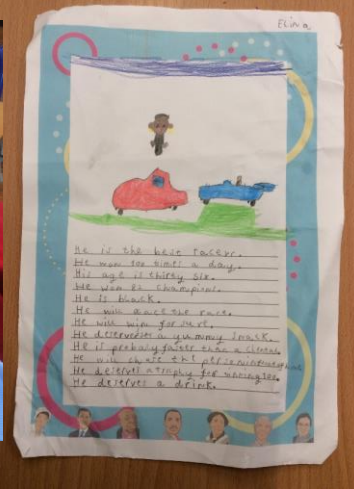 Elina
He is the best racer.
He won 100 times a day.
His age is thirty six.
He won 82 champions.
He is black.
He will the race.
He will win for sure.
He deserves a yummy snack.
He is probaly faster than a cheetah.
He will chase the person in front
He deserves a trophy for winning 100.
He deserves a drink.